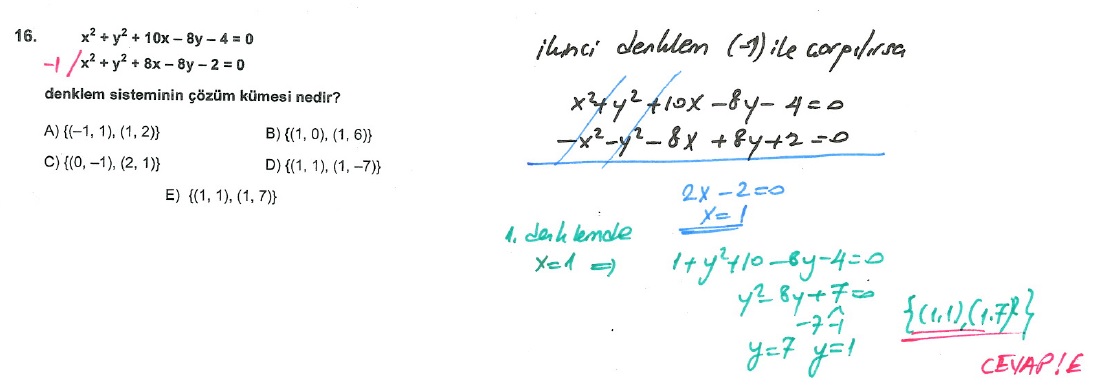 16. x² + y² + 10x – 8y – 4 = 0
-1/ x² + y² + 8x – 8y – 2 = 0
denklem sisteminin çözüm kümesi nedir?
A) {(–1, 1), (1, 2)} B) {(1, 0), (1, 6)}
C) {(0, –1), (2, 1)} D) {(1, 1), (1, –7)}
E) {(1, 1), (1, 7)}
ikinci denklem (-1) ile çarpılırsa
x²+y²+10x-8y-4=0
-x²-y²-8x+8y+2=0
2x-2=0
x=1
1. denklemde
x=1 ⇒ 1+y²+10-8y-4=0
y²-8y+7=0
-7 -1
y=7 y=1
{(1,1),(1,7)}
CEVAP:E